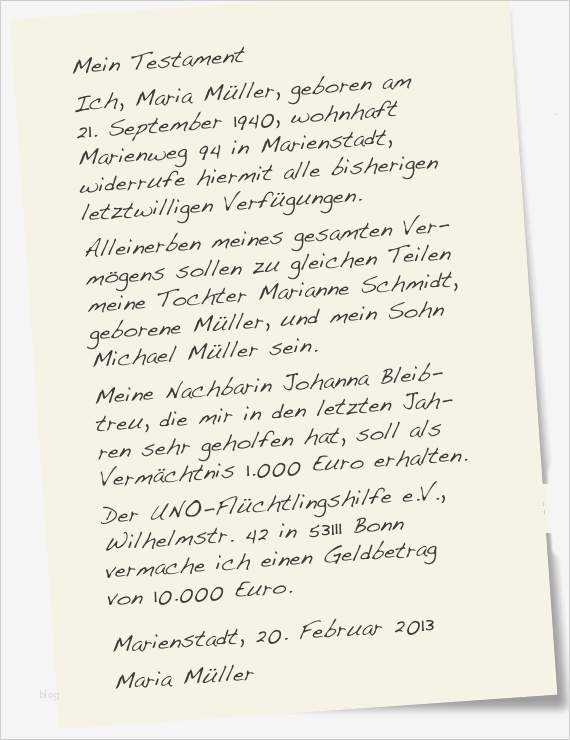 Mein Testament
Ich, Maria Müller, geboren am
21. September 1940, wohnhaft
Marienweg 94 in Marienstadt,
widerrufe hiermit alle bisherigen
letztwilligen Verfügungen.
Alleinerben meines gesamten Ver-
mögens sollen zu gleichen Teilen
meine Tochter Marianne Schmidt,
geborene Müller, und mein Sohn
Michael Müller sein.
Meine Nachbarin Johanna Bleib-
treu, die mir in den letzten Jah-
ren sehr geholfen hat, soll als
Vermächtnis 1.000 Euro erhalten.
Der UNO-Flüchtlingshilfe e.V.,
Wilhelmstr. 42 in 53111 Bonn
vermache ich einen Geldbetrag
von 10.000 Euro.
Marienstadt, 20. Februar 2013
Maria Müller
blog